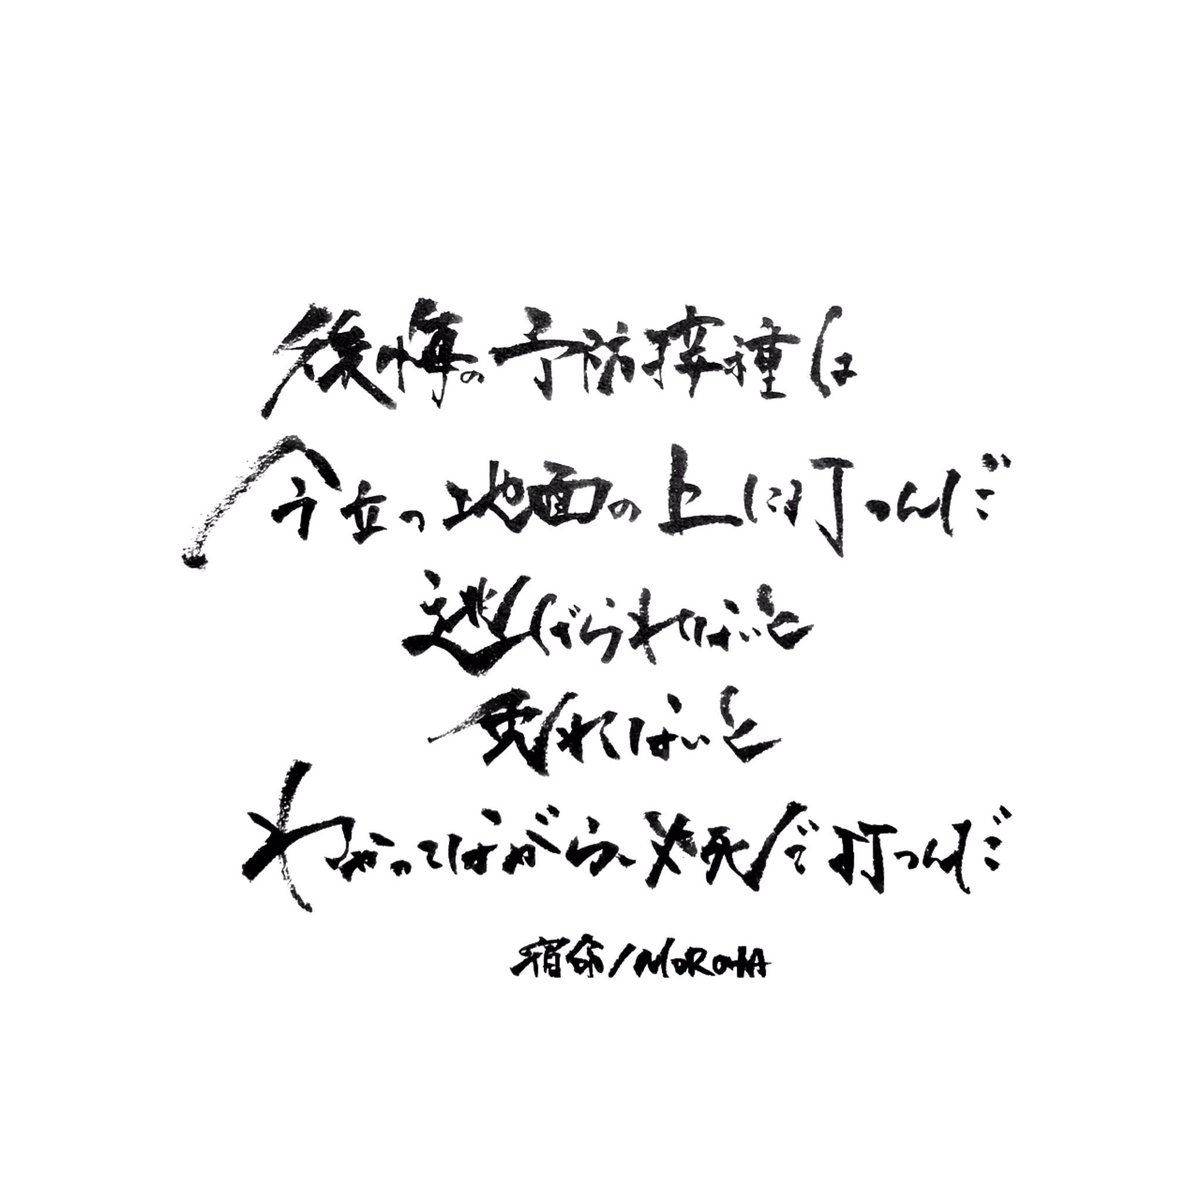 後悔の予防接種は
今立つ地面の上に打つんだ
逃げられないと
免れないと
わかってながら、必死で打つんだ
宿命/MOROHA